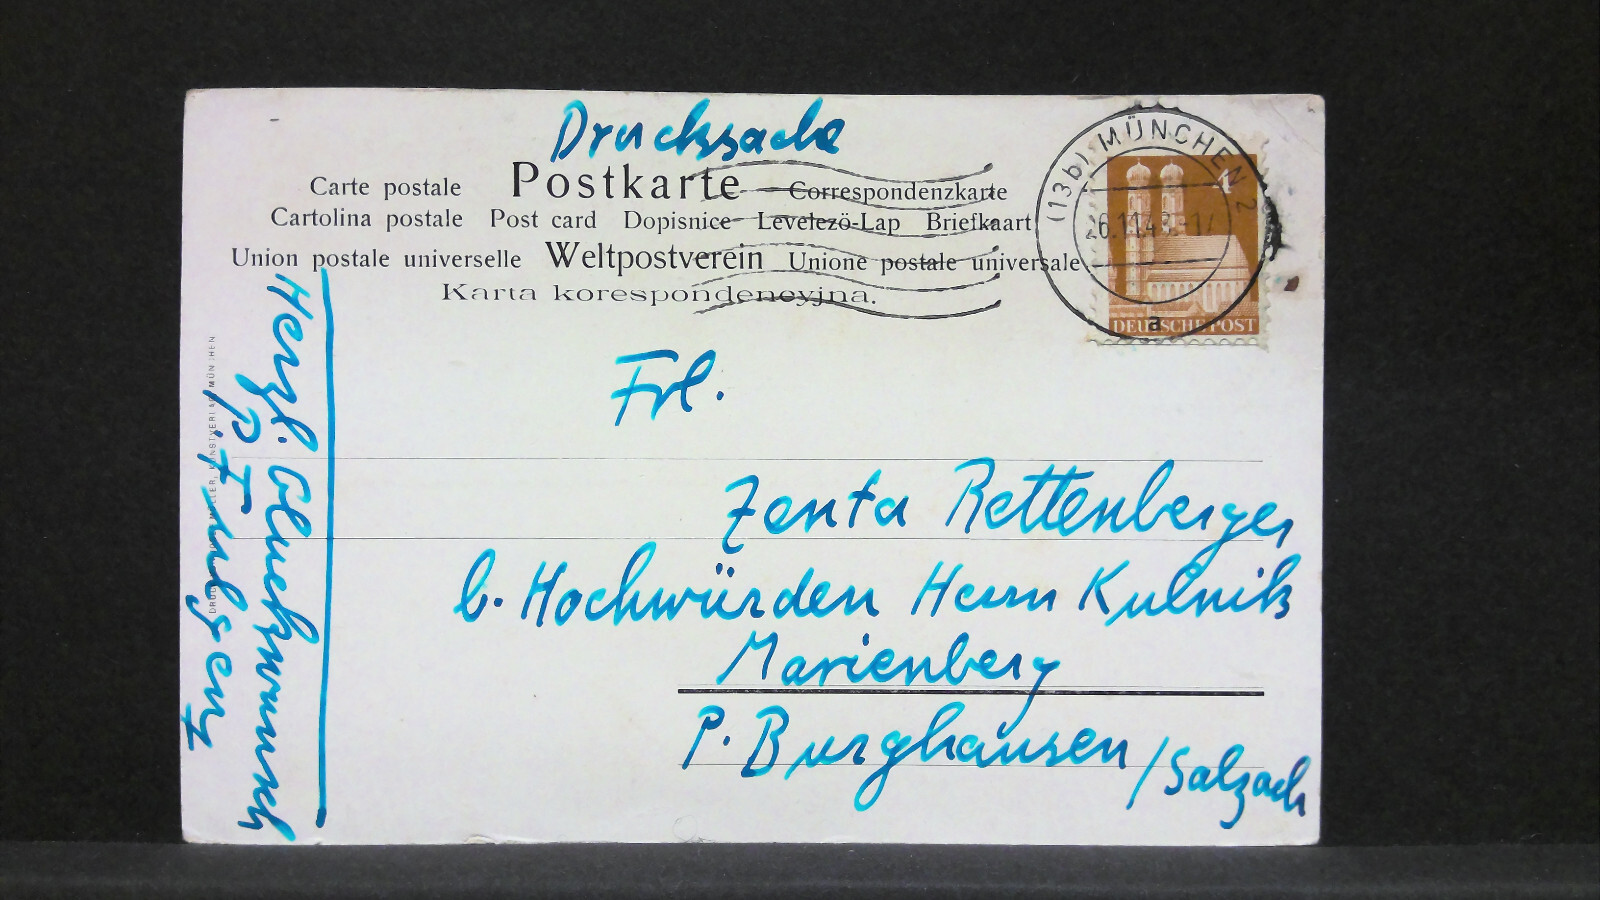 Drucksache
Carte postale Postkarte Correspondenzkarte
Cartolina postale Post card Dopisnice Levelezö-Lap Briefkaart
Union postale universelle Weltpostverein Unione postale universale
Karta korespondencyjna.
(13b) MÜNCHEN 2
26.11.48.-17
a
4
DEUTSCHE POST
Frl.
Zenta Rettenberger
b. Hochwürden Herrn Kulnik
Marienberg
P. Burghausen /Salzach
Herzl. Glückwunsch
MÜLLER, KUNSTVERLAG MÜNCHEN